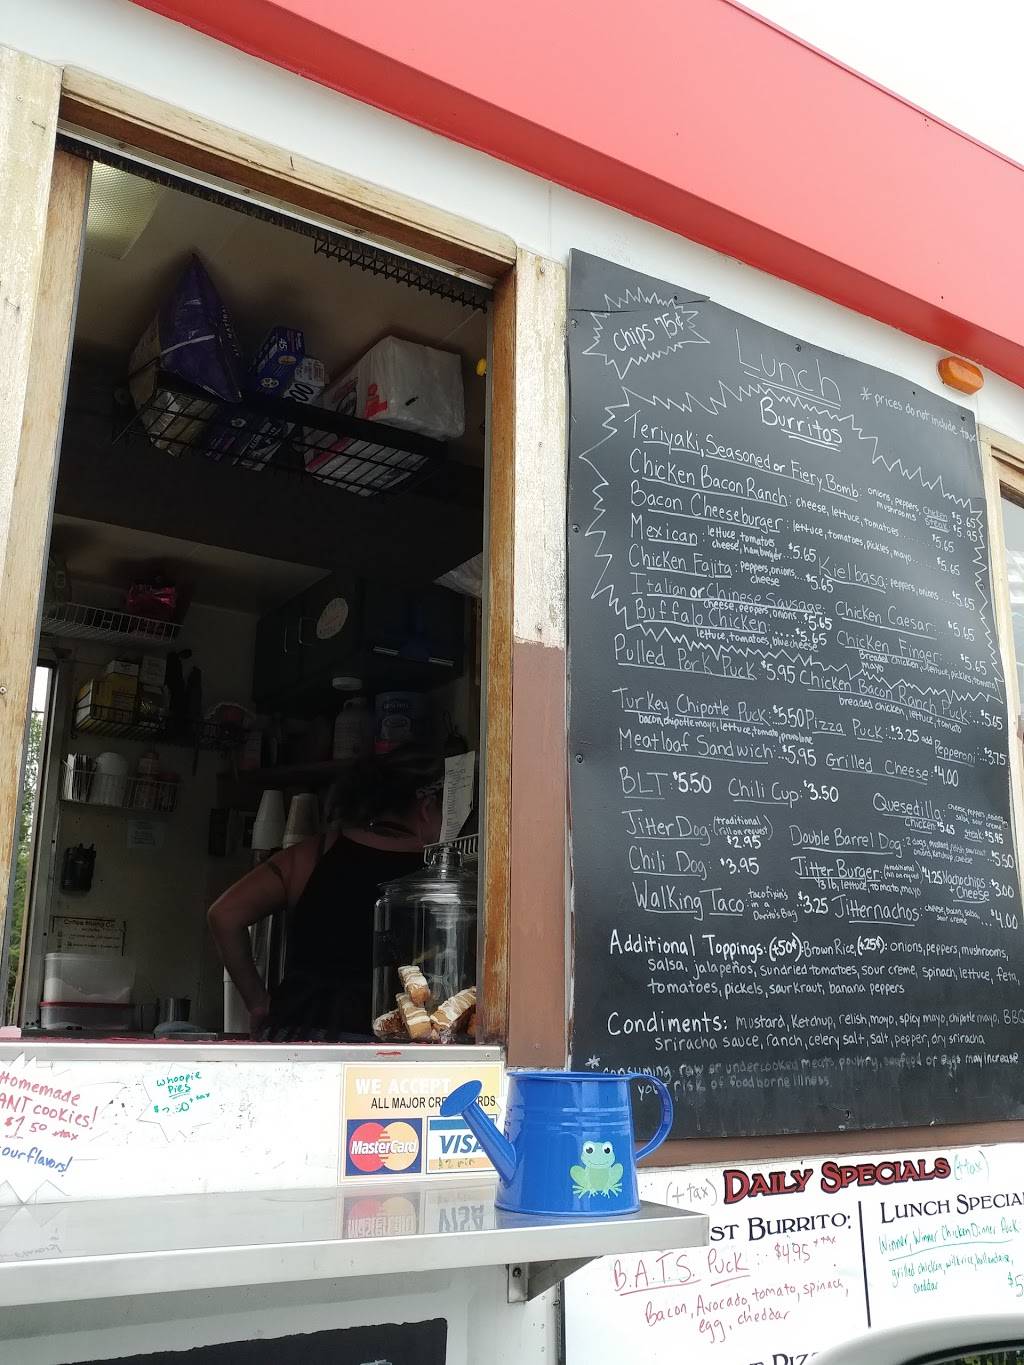 chips 75¢
Lunch
* prices do not include tax
Burritos
Teriyaki, Seasoned or Fiery Bomb: onions, peppers, mushrooms Chicken $5.65 Steak $5.95
Chicken Bacon Ranch: cheese, lettuce, tomatoes ....... $5.65
Bacon Cheeseburger: lettuce, tomatoes, pickles, mayo...... $5.65
Mexican: lettuce, tomatoes cheese, hamburger... $5.65
Kielbasa: peppers, onions .... $5.65
Chicken Fajita: peppers, onions, cheese ... $5.65
Italian or Chinese Sausage: cheese, peppers, onions.. $5.65
Chicken Caesar: $5.65
Buffalo Chicken: ..... $5.65
lettuce, tomatoes, blue cheese
Chicken Finger: ... $5.65
Breaded chicken, lettuce, pickles, tomato, mayo
Pulled Pork Puck: $5.95
Chicken Bacon Ranch Puck.. $5.65
breaded chicken, lettuce, tomato
Turkey Chipotle Puck: $5.50
bacon, chipotle mayo, lettuce, tomato, provolone
Pizza Puck: $3.25 add Pepperoni: $3.75
Meatloaf Sandwich: $5.95
Grilled Cheese: $4.00
BLT: $5.50
Chili Cup: $3.50
Quesedilla: cheese, peppers, onions, salsa, sour creme
Chicken $5.65 Steak $5.95
Jitter Dog: (traditional roll on request) $2.95
Double Barrel Dog: 2 dogs, mustard, relish, saurkraut onions, ketchup, cheese $5.50
Chili Dog: $3.95
Jitter Burger: 1/3 lb, lettuce, tomato, mayo $4.25
Nacho chips + Cheese $3.00
Walking Taco: taco fixin's in a Dorito's Bag $3.25
Jitternachos: cheese, bacon, salsa, sour creme $4.00
Additional Toppings: (+50¢): Brown Rice, (+25¢): onions, peppers, mushrooms,
salsa, jalapeños, sundried tomatoes, sour creme, spinach, lettuce, feta,
tomatoes, pickels, saurkraut, banana peppers
Condiments: mustard, ketchup, relish, mayo, spicy mayo, chipotle mayo, BBQ
sriracha sauce, ranch, celery salt, salt, pepper, dry sriracha
* consuming raw or undercooked meats, poultry, seafood or eggs may increase
your risk of foodborne illness
Homemade
ANT cookies!
$1.50 +tax
our flavors!
whoopie
pies
$2.50 + tax
WE ACCEPT
ALL MAJOR CREDIT CARDS
MasterCard
VISA
(+tax) DAILY SPECIALS (+tax)
ST BURRITO:
LUNCH SPECIA
B.A.T.S. Puck: $4.95 +tax
Bacon, Avocado, tomato, spinach,
egg, cheddar
Winner, Winner Chicken Dinner Puck:
grilled chicken, wild rice, hollandaise,
cheddar
$5